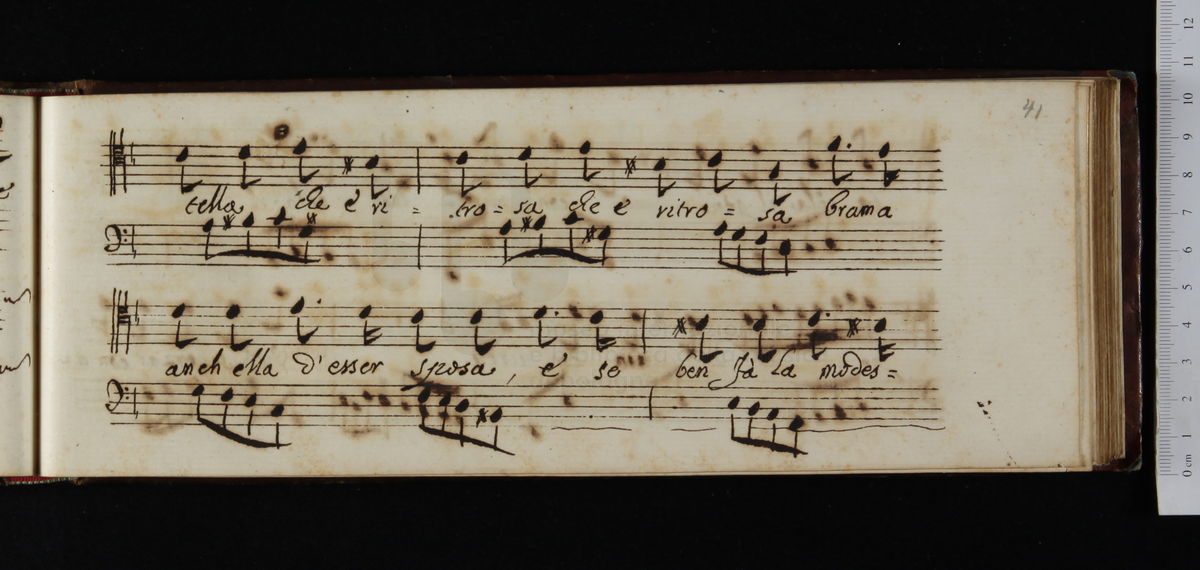 41
tella che è ri = tro = sa che è ritro = sa brama
anch ella d'esser sposa, e se ben fà la modes =
12
11
10
9
8
7
6
5
4
3
2
1
0 cm